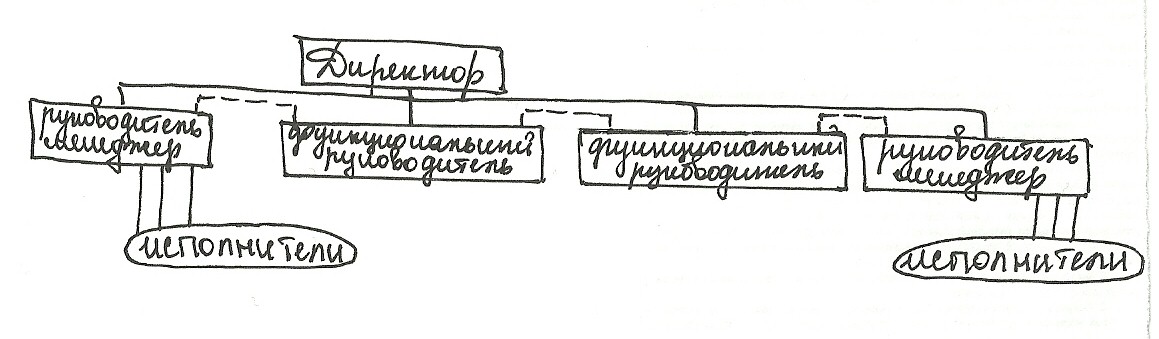 Директор
руководитель
менеджер
функциональный
руководитель
функциональный
руководитель
руководитель
менеджер
исполнители
исполнители